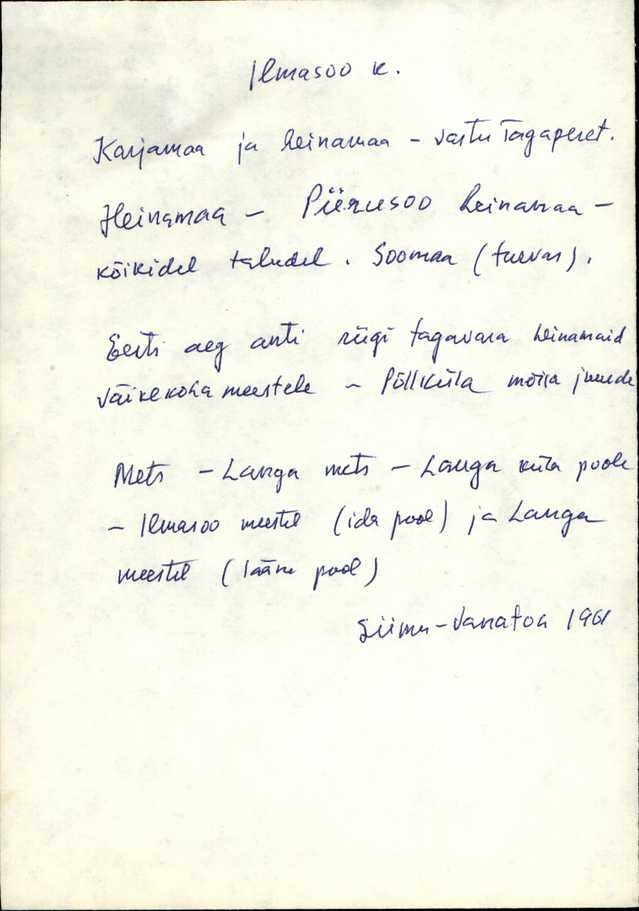 Ilmasoo k.
Karjamaa ja heinamaa – vastu Tagaperet.
Heinamaa – Piirusoo heinamaa –
kõikidel taludel. Soomaa (turvas).
Eesti aeg anti riigi tagavara heinamaid
väikekoha meestele – Põllküla mõisa juurde
Mets – Langa mets – Langa küla poole
– Ilmasoo meestel (ida pool) ja Langa
meestel (lääne pool)
Siimu-Vanatoa 1961